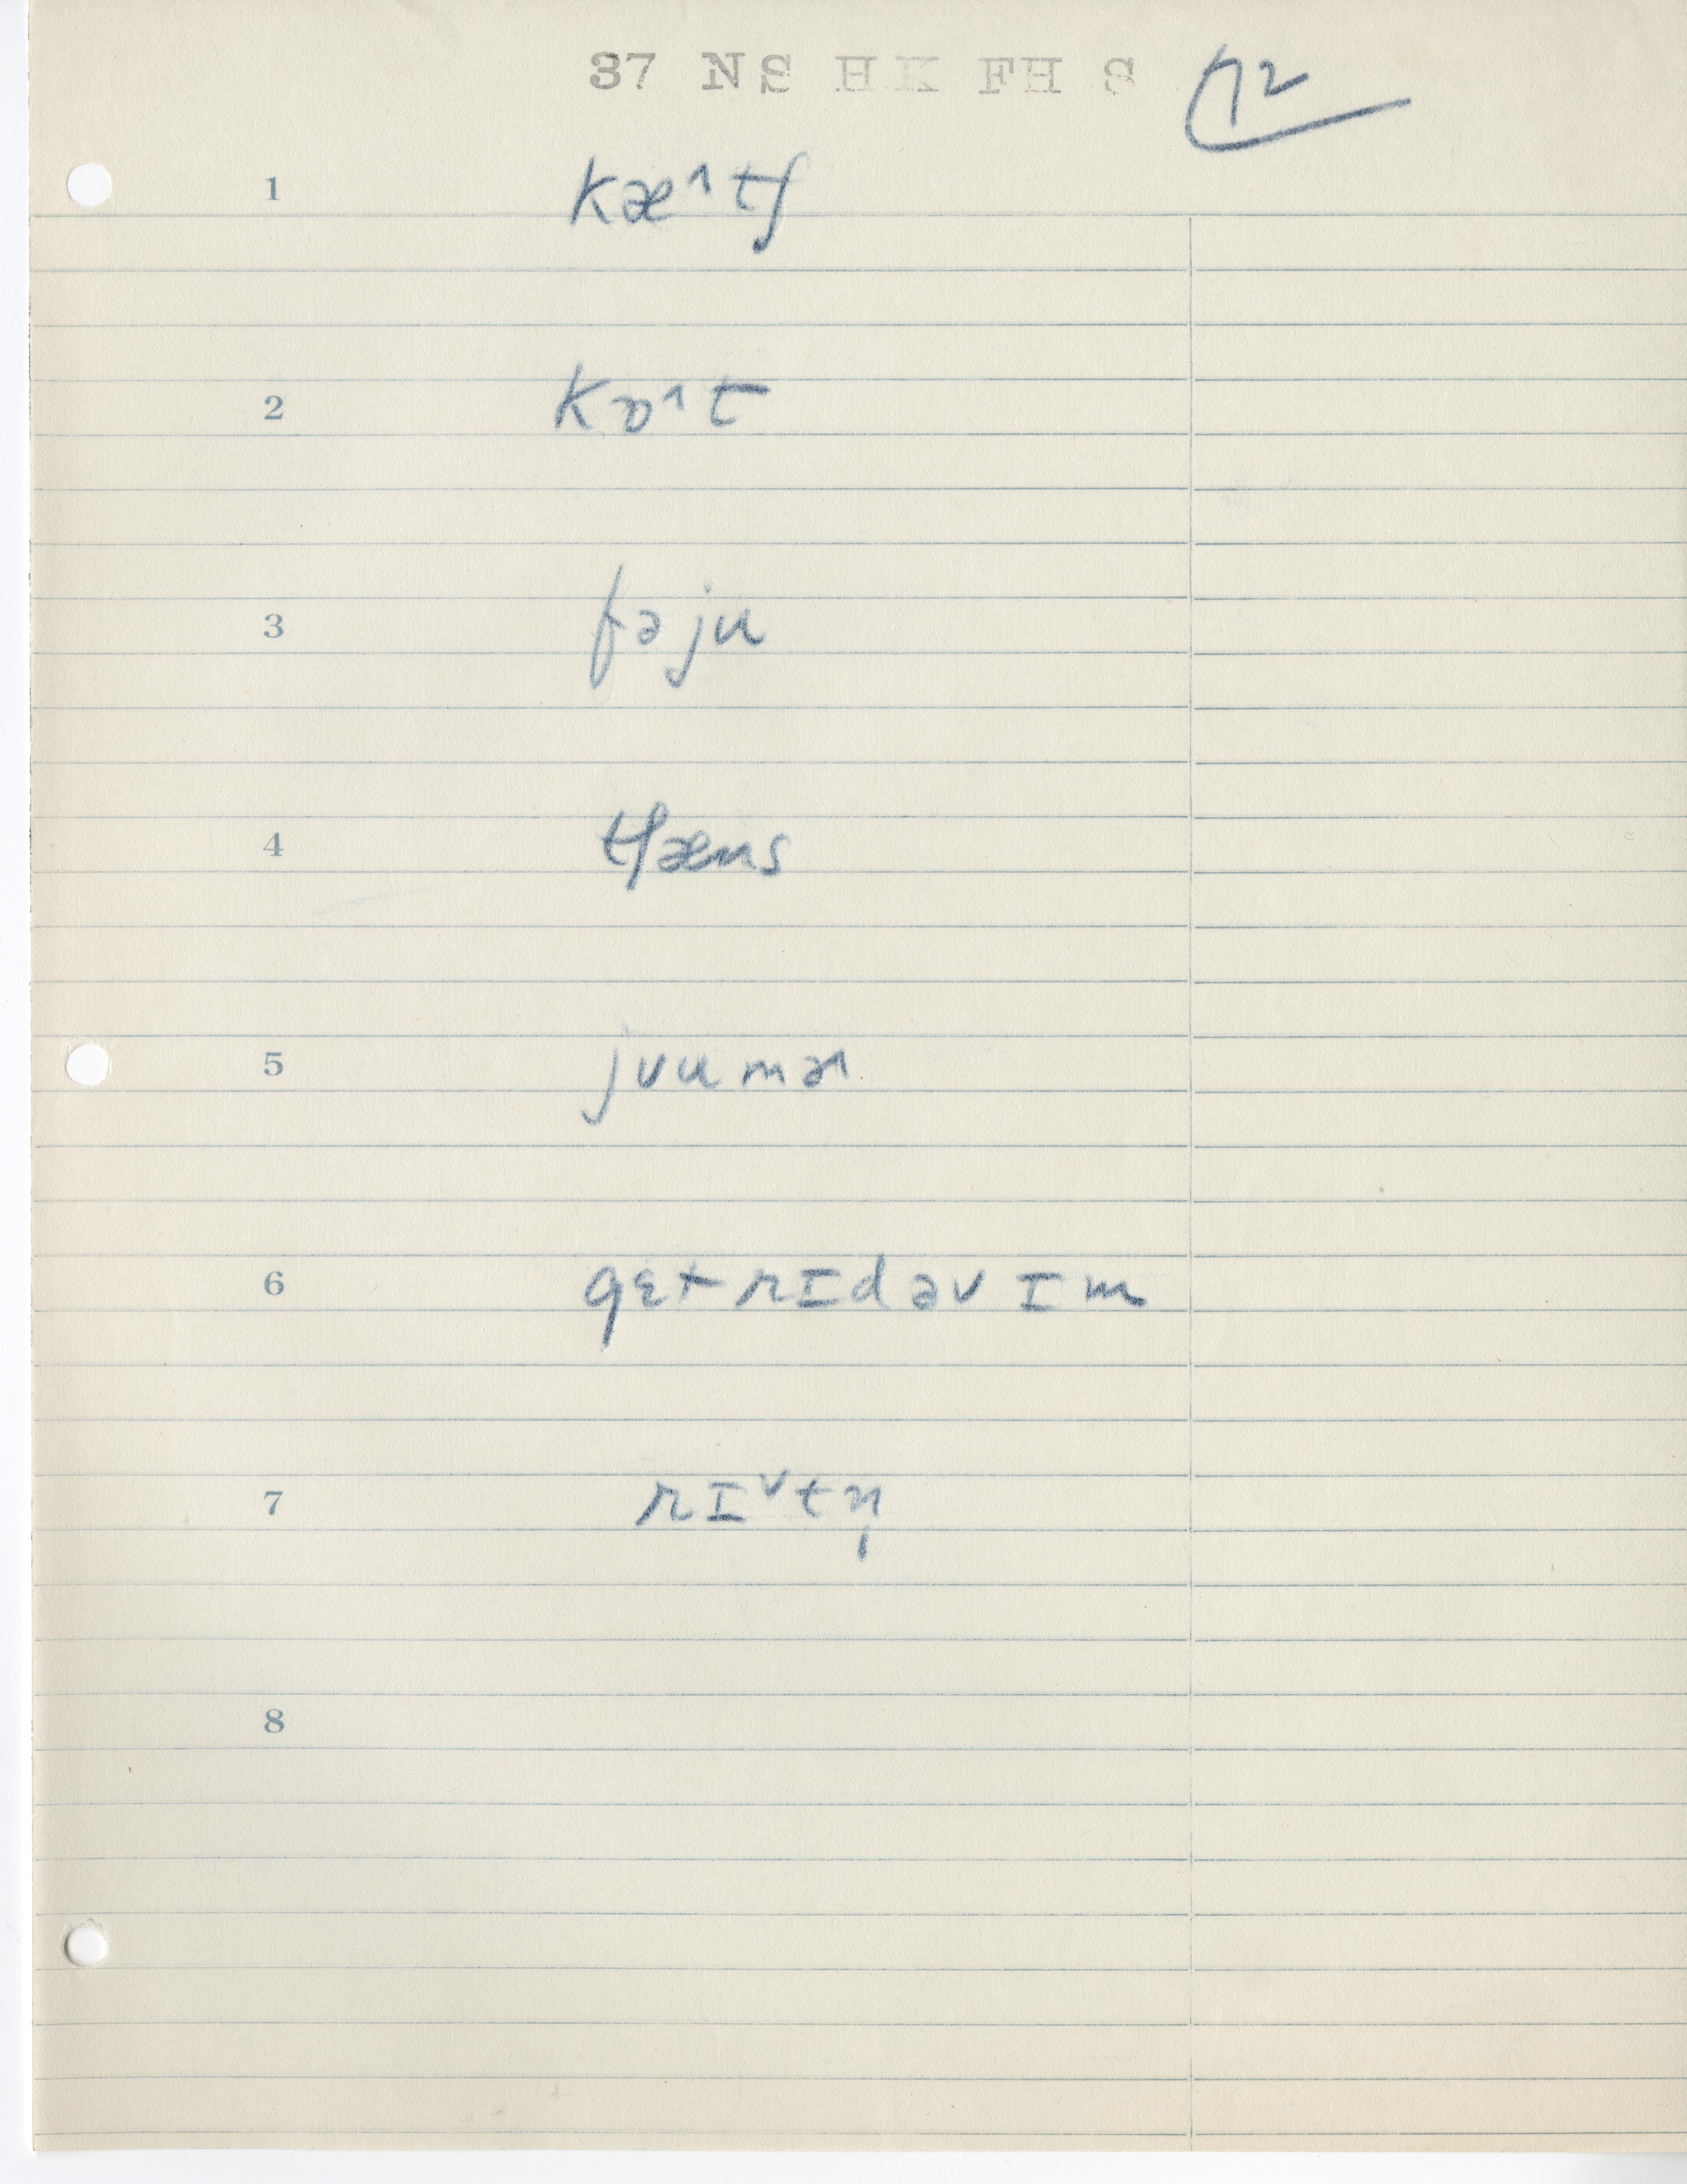 37 NS HK FH S 12
1 kæ˄tʃ
2 kɒ˄t
3 fəju
4 tʃæns
5 jʊumɚ
6 gɛt rɪd əv ɪm
7 rɪ˅tn̩
8